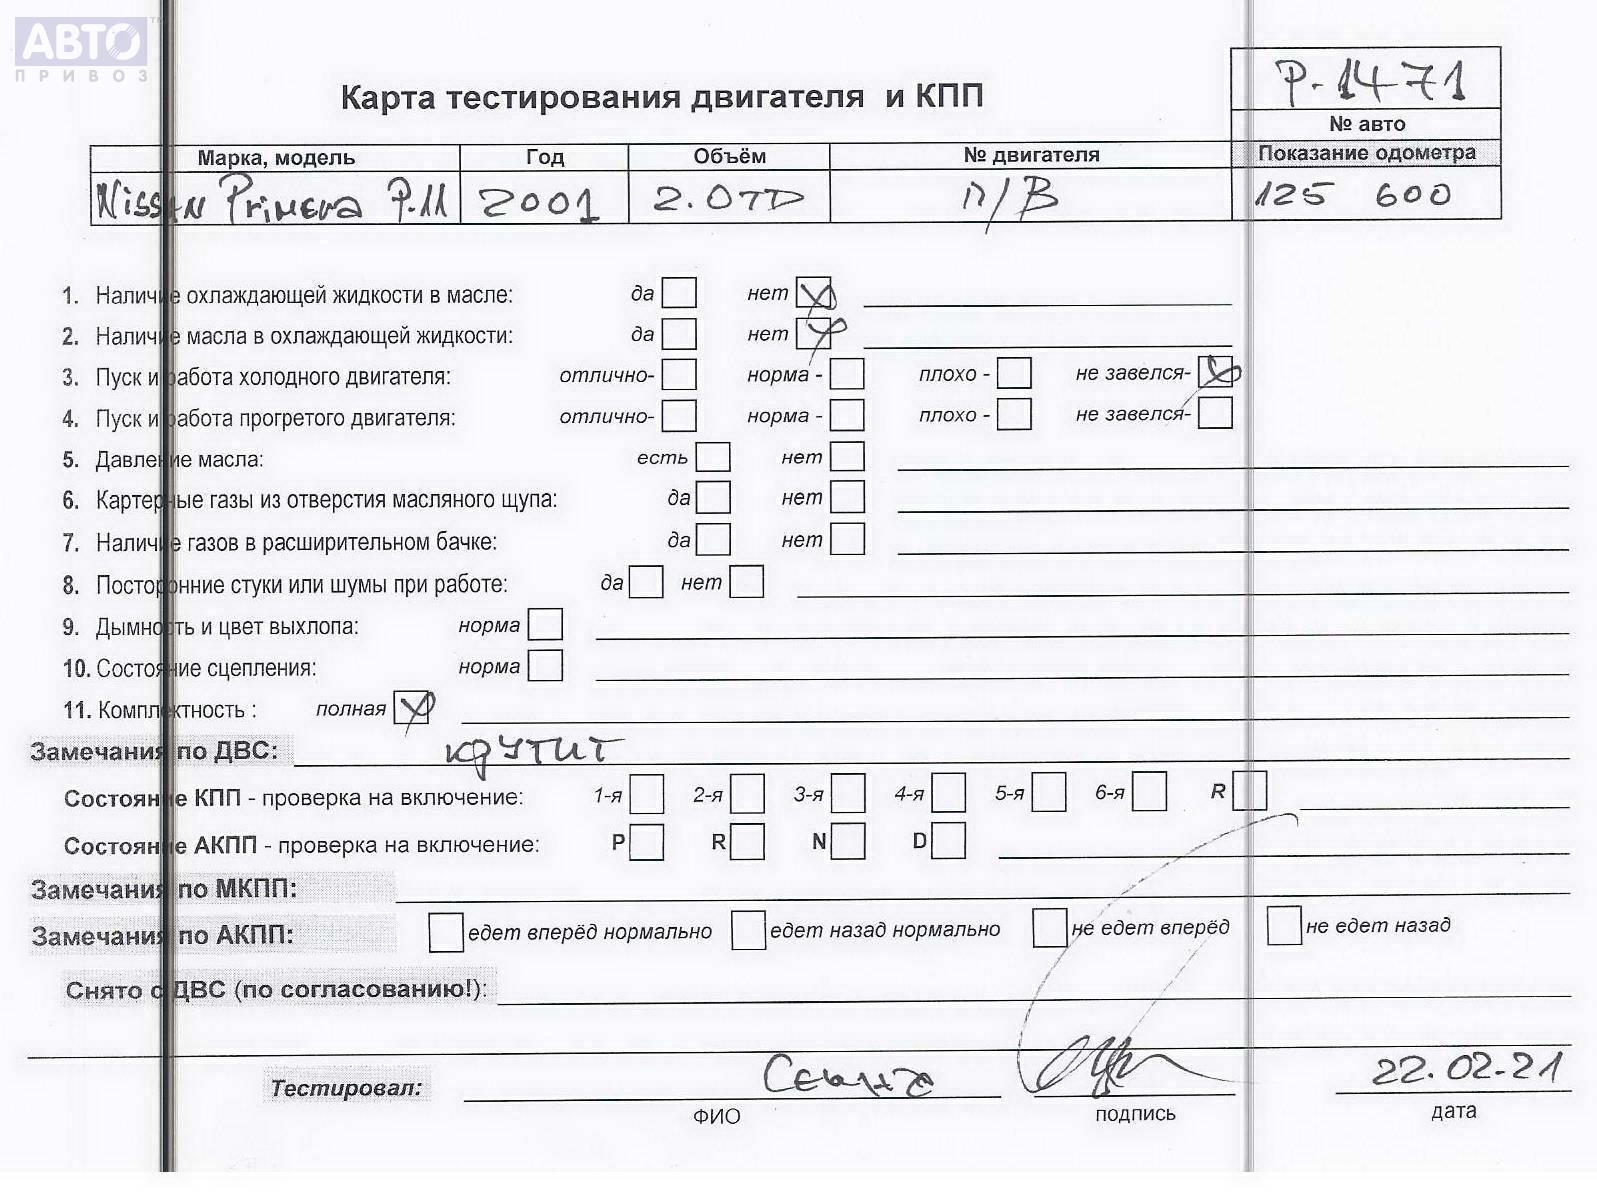 АВТО
ПРИВОЗ
Р-1471
Карта тестирования двигателя и КПП
№ авто
Марка, модель Год Объём № двигателя Показание одометра
Nissan Primera P.11 2001 2.0TD П/В 125 600
1. Наличие охлаждающей жидкости в масле: да нет
2. Наличие масла в охлаждающей жидкости: да нет
3. Пуск и работа холодного двигателя: отлично- норма - плохо - не завелся-
4. Пуск и работа прогретого двигателя: отлично- норма - плохо - не завелся-
5. Давление масла: есть нет
6. Картерные газы из отверстия масляного щупа: да нет
7. Наличие газов в расширительном бачке: да нет
8. Посторонние стуки или шумы при работе: да нет
9. Дымность и цвет выхлопа: норма
10. Состояние сцепления: норма
11. Комплектность : полная
Замечания по ДВС: крутит
Состояние КПП - проверка на включение: 1-я 2-я 3-я 4-я 5-я 6-я R
Состояние АКПП - проверка на включение: P R N D
Замечания по МКПП:
Замечания по АКПП: едет вперёд нормально едет назад нормально не едет вперёд не едет назад
Снято с ДВС (по согласованию!):
Тестировал: 22.02-21
ФИО подпись дата